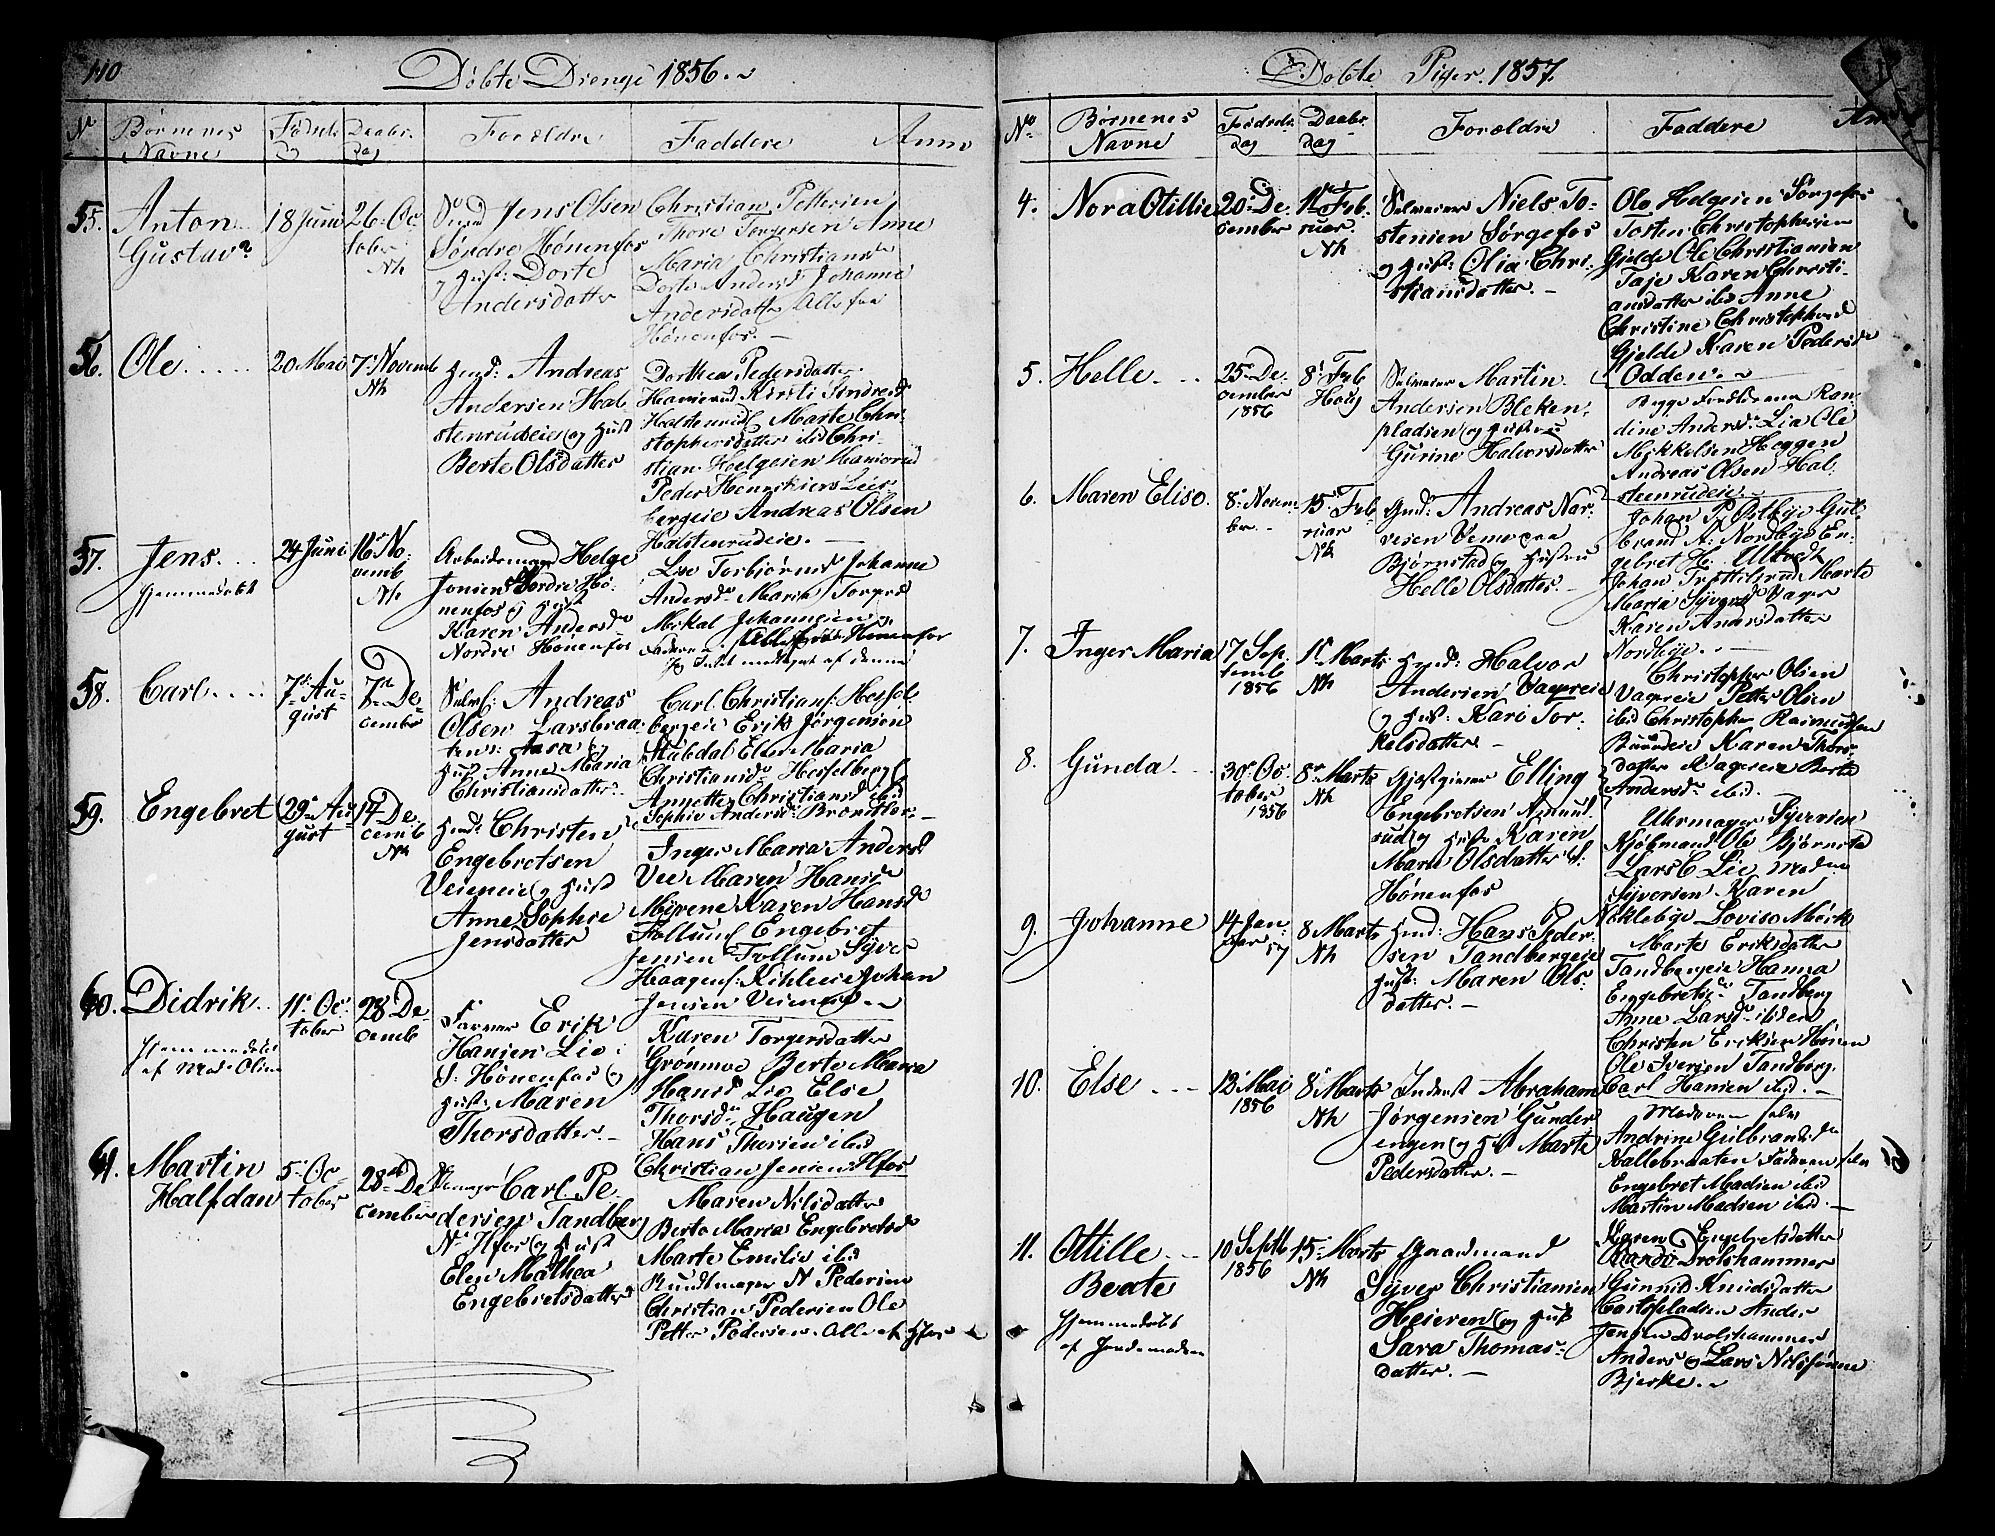 110
Døbte Drenge 1856.
No
Børnenes Navne
Fødsels Dag
Daabs Dag
Forældre
Faddere
Anno
55.
Anton
Gustav
18 Juni
26. Oc-
tober
Nk
Jens Olsen
Søndre Hønenfos
og Hust: Dorte
Andersdatter
Christian Pettersen
Thore Torgersen Anne
Maria Christians
Dorte Anders Johanne
Andersdatter Alle fra
Hønenfos.
56.
Ole
20 Mai
7 Novemb
Nk
Husd: Andreas
Andersen Hal
stenrudeie og Hust
Berte Olsdatter
Dorthea Pedersdatter
Kirsti
Halstenrud Marte Chri-
stophersdatter ibid Chri-
stian Helgesen
Peder
bergeie Andreas Olsen
Halstenrudeie.
57.
Jens
Hjemmedøbt
24 Juni
16 No
vemb
Nk
Arbeidsmand Helge
Jensen Søndre Hø-
nenfos og Hust
Karen Andersd
Nordre Hønenfos
Lise Torbjørnsd Johanne
Andersd Maria Torgersd
Mikal Johannesen og
Faderen Alle fra Hønenfos
58.
Carl
7de Au-
gust
7de De-
cember
Andreas
Olsen Larsbraa-
ten og
Hust Anne Maria
Christiansdatter
Carl Christians: Hessel-
bergeie Erik Jørgensen
Stubdal Else Maria
Christiansd Hesselberg
Annette Christiansd ibid
Sophie Andersd
59.
Engebret
29 Au
gust
14 De-
cemb
Nk
Husd: Christen
Engebretsen
Veieneie og Hust
Anne Sophie
Jensdatter
Inger Maria Andersd
Vee Maren Hansd
Myrene Karen Hansd
Follum Engebret
Jensen Follum Syver
Haagens: Kihleeie Johan
Jensen Veieneie
60.
Didrik
Hjemmedøbt
af Mad: Olsen
11 Oc-
tober
28 De-
cemb
Farver Erik
Hansen Lie
S: Hønenfos og
Hust: Maren
Thorsdatter.
Karen Torgersdatter
Grønmoe Berte Maria
Hansd Lie Else
Thorsd Haugen
Hans Thorsen ibid
Christian Jensen Hfos
61.
Martin
Halfdan
5 Oc
tober
28 De-
cember
Carl Pe-
dersen Tandberg
N Hfos og Hust
Elen Mathea
Engebretsdatter
Maren Nilsdatter
Berte Maria Engebretsd
Marte Emilie ibid
Bundtmager N Pedersen
Christian Pedersen Ole
Petter Pedersen. Alle af Hfos
Døbte Piger. 1857.
No.
Børnenes Navne
Fødsels Dag
Daabs Dag
Forældre
Faddere
4.
Nora Otillie
20 De-
cember
1 Feb
ruar
Nk
Selveier Niels To-
stensen Sørgefos
og Hust: Olia Chri-
stiansdatter.
Ole Helgesen Sørgefos
Tosten Christophersen
Gjelde Ole Christiansen
Taje Karen Christi-
ansdatter ibid Anne
Christine Christophersd
Gjelde Karen Pedersd
Odden
5.
Helle
25 De-
cember
1856
8 Feb
Haug
Selveier Martin
Andersen Bleken-
pladsen og Hustru
Gurine Halvorsdatter
Begge Forældrene Ran-
dine Andersd Lia Ole
Mikkelsen Heggen
Andreas Olsen Hal-
steenrudeie
6.
Maren Elise
8 Novem-
ber
15 Feb
ruar
Nk
Husd: Andreas Nar-
vesen Veme paa
Bjørnstad og Hustru
Helle Olsdatter
Johan P Østbye Gul-
brand A: Nordbye En-
gebret H:
Johan Marte
Maria Syversd Vager
Karen Andersdatter
Nordbye.
7.
Inger Maria
7 Sep
temb
1856
1 Marts
Nk
Husd: Halvor
Andersen Vagereie
og Hust: Kari Tor-
kelsdatter
Christopher Olsen
Vagereie Petter Olsen
ibid Christopher Rasmussen
Karen Thors-
datter Vagereie Berte
Andersd ibid.
8.
Gunda
30 Oc
tober
1856
8 Marts
Nk
Gjæstgiver Elling
Engebretsen Asmund-
rud og Hust Karen
Marie Olsdatter S:
Hønenfos
Uhrmager Syversen
Kjøbmand Ole Bjørnstad
Lars C Lie Madm
Syversen Karen
Noklebye Lovise Mørk
9.
Johanne
14 Jan
uar 57
8 Marts
Nk
Husd: Hans Peder-
sen Tandbergeie
Hust: Maren Ols-
datter.
Marte Eriksdatter
Tandbergeie Hanna
Engebretsd Tandberg
Anne Larsd ibiden
Christen Eriksen Hønen
Ole Iversen Tandberg
Carl Hansen ibid.
10.
Else
13 Mai
1856
8 Marts
Nk
Inderst Abraham
Jørgensen Gunder-
engen og Hust Marte
Pedersdatter.
Moderen selv
Andrine Gulbrandsd
Kallebraaten Faderen selv
Engebret Madsen ibid
Martin Madsen ibid.
11.
Ottille
Beate
Hjemmedøbt
af Jordemoderen
10 Septb
1856
15 Marts
Nk
Gaardmand
Syver Christiansen
Heieren og Hust
Sara Thomas-
datter.
Karen Engebretsdatter
Drolshammer
Gunnild Knudsdatter
Anders
Jensen Drolshammer
Anders og Lars Nilssønne
Bjerke.